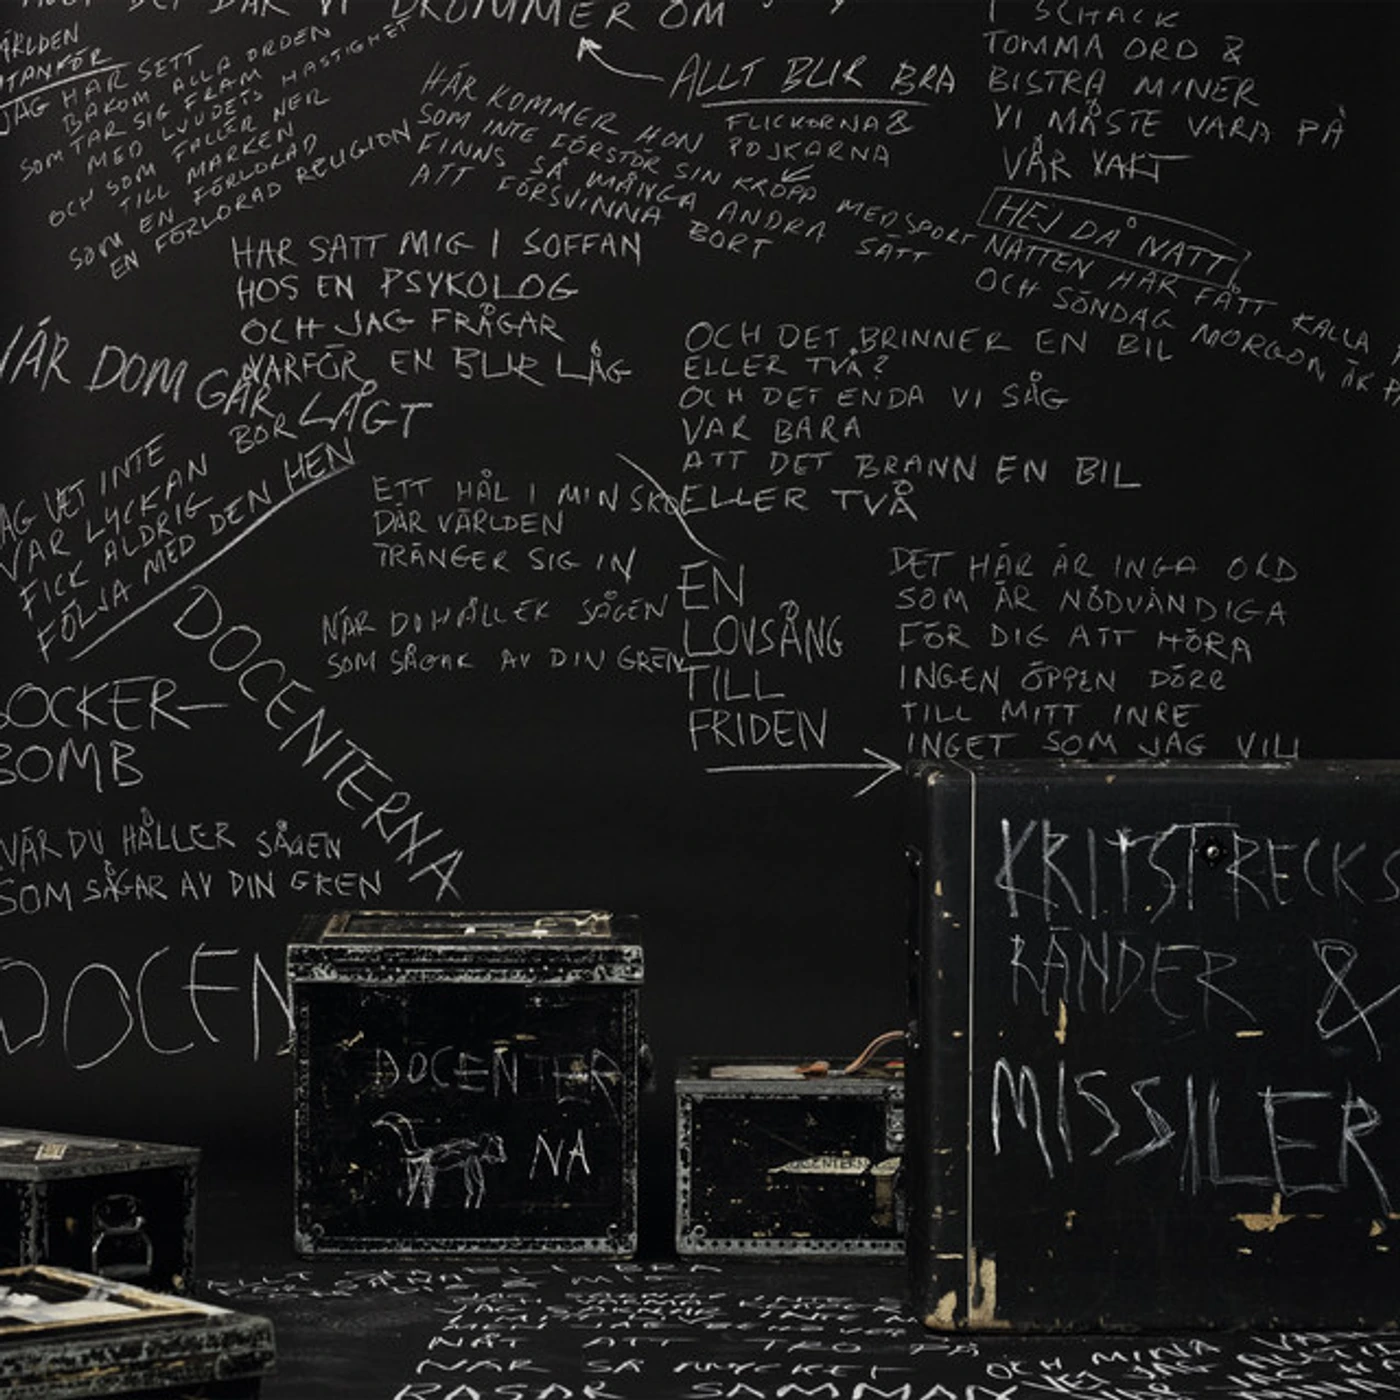 DET DÄR VI DRÖMMER OM
VÄRLDEN
UTANFÖR
JAG HAR SETT
BAKOM ALLA ORDEN
SOM TAR SIG FRAM
MED LJUDETS HASTIGHET
OCH SOM FALLER NER
TILL MARKEN
SOM EN FÖRLORAD
EN FÖRLORAD RELIGION
ALLT BLIR BRA
FLICKORNA &
POJKARNA
HÄR KOMMER HON
SOM INTE FÖRSTÖR SIN KROPP MED SPORT
FINNS SÅ MÅNGA ANDRA SÄTT
ATT FÖRSVINNA BORT
I SCHACK
TOMMA ORD &
BISTRA MINER
VI MÅSTE VARA PÅ
VÅR VAKT
HEJ DÅ NATT
NATTEN HAR FÅTT KALLA
OCH SÖNDAG MORGON ÄR
HAR SATT MIG I SOFFAN
HOS EN PSYKOLOG
OCH JAG FRÅGAR
VARFÖR EN BLIR LÅG
NÄR DOM GÅR LÅGT
JAG VET INTE
VAR LYCKAN BOR
FICK ALDRIG
FÖLJA MED DEN HEN
OCH DET BRINNER EN BIL
ELLER TVÅ?
OCH DET ENDA VI SÅG
VAR BARA
ATT DET BRANN EN BIL
ELLER TVÅ
ETT HÅL I MIN SKO
DÄR VÄRLDEN
TRÄNGER SIG IN
NÄR DU HÅLLER SÅGEN
SOM SÅGAR AV DIN GREN
EN
LOVSÅNG
TILL
FRIDEN
DET HÄR ÄR INGA ORD
SOM ÄR NÖDVÄNDIGA
FÖR DIG ATT HÖRA
INGEN ÖPPEN DÖRR
TILL MITT INRE
INGET SOM JAG VILL
SOCKER-
BOMB
DOCENTERNA
NÄR DU HÅLLER SÅGEN
SOM SÅGAR AV DIN GREN
DOCEN
DOCENTER
NA
DOCENTERN
KRITSTRECKS
RÄNDER &
MISSILER
NÅT ATT TRO PÅ
NÄR SÅ MYCKET
RASAR SAMMAN
OCH MINA